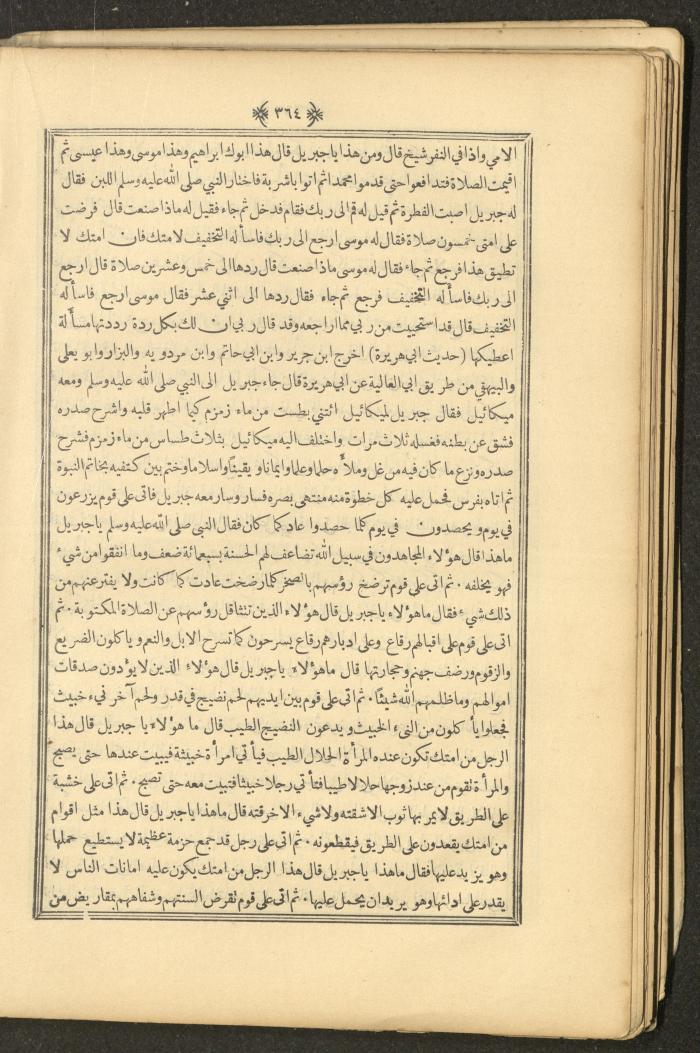 ٣٦٤
الامي واذا في النفر شيخ قال ومن هذا يا جبريل قال هذا ابوك ابراهيم وهذا موسى وهذا عيسى ثم
اقيمت الصلاة فتدافعوا حتى قدموا محمدا ثم اتوا باشربة فاختار النبي صلى الله عليه وسلم اللبن فقال
له جبريل اصبت الفطرة ثم قيل له قم الى ربك فقام فدخل ثم جاء فقيل له ماذا صنعت قال فرضت
على امتي خمسون صلاة فقال له موسى ارجع الى ربك فاسأله التخفيف لامتك فان امتك لا
تطيق هذا فرجع ثم جاء فقال له موسى ماذا صنعت قال ردها الى خمس وعشرين صلاة قال ارجع
الى ربك فاسأله التخفيف فرجع ثم جاء فقال ردها الى اثني عشر فقال موسى ارجع فاسأله
التخفيف قال قد استحييت من ربي مما اراجعه وقد قال ربي ان لك بكل ردة رددتها مسألة
اعطيكها (حديث ابي هريرة) اخرج ابن جرير وابن ابي حاتم وابن مردويه والبزار وابو يعلى
والبيهقي من طريق ابي العالية عن ابي هريرة قال جاء جبريل الى النبي صلى الله عليه وسلم ومعه
ميكائيل فقال جبريل لميكائيل ائتني بطست من ماء زمزم كيما اطهر قلبه واشرح صدره
فشق عن بطنه فغسله ثلاث مرات واختلف اليه ميكائيل بثلاث طساس من ماء زمزم فشرح
صدره ونزع ما كان فيه من غل وملأه حلما وعلما وايمانا ويقينًا واسلاما وختم بين كتفيه بخاتم النبوة
ثم اتاه بفرس فحمل عليه كل خطوة منه منتهى بصره فسار وسار معه جبريل فاتى على قوم يزرعون
في يوم ويحصدون في يوم كلما حصدوا عاد كما كان فقال النبي صلى الله عليه وسلم يا جبريل
ما هذا قال هؤلاء المجاهدون في سبيل الله تضاعف لهم الحسنة بسبعمائة ضعف وما انفقوا من شيء
فهو يخلفه . ثم اتى على قوم ترضخ رؤسهم بالصخر كلما رضخت عادت كما كانت ولا يفتر عنهم من
ذلك شيء فقال ما هؤلاء يا جبريل قال هؤلاء الذين تتثاقل رؤسهم عن الصلاة المكتوبة . ثم
اتى على قوم على اقبالهم رقاع وعلى ادبارهم رقاع يسرحون كما تسرح الابل والنعم وياكلون الضريع
والزقوم ورضف جهنم وحجارتها قال ما هؤلاء يا جبريل قال هؤلاء الذين لا يؤدون صدقات
اموالهم وما ظلمهم الله شيئًا . ثم اتى على قوم بين ايديهم لحم نضيج في قدر ولحم آخر نيء خبيث
فجعلوا يأكلون من النيء الخبيث ويدعون النضيج الطيب قال ما هؤلاء يا جبريل قال هذا
الرجل من امتك تكون عنده المرأة الحلال الطيب فيأتي امرأة خبيثة فيبيت عندها حتى يصبح
والمرأة تقوم من عند زوجها حلالا طيبا فتأتي رجلا خبيثا فتبيت معه حتى تصبح . ثم اتى على خشبة
على الطريق لا يمر بها ثوب الا شقته ولا شيء الا خرقته قال ما هذا يا جبريل قال هذا مثل اقوام
من امتك يقعدون على الطريق فيقطعونه . ثم اتى على رجل قد جمع حزمة عظيمة لا يستطيع حملها
وهو يزيد عليها فقال ما هذا يا جبريل قال هذا الرجل من امتك يكون عليه امانات الناس لا
يقدر على ادائها وهو يريد ان يحمل عليها . ثم اتى على قوم تقرض السنتهم وشفاههم بمقاريض من